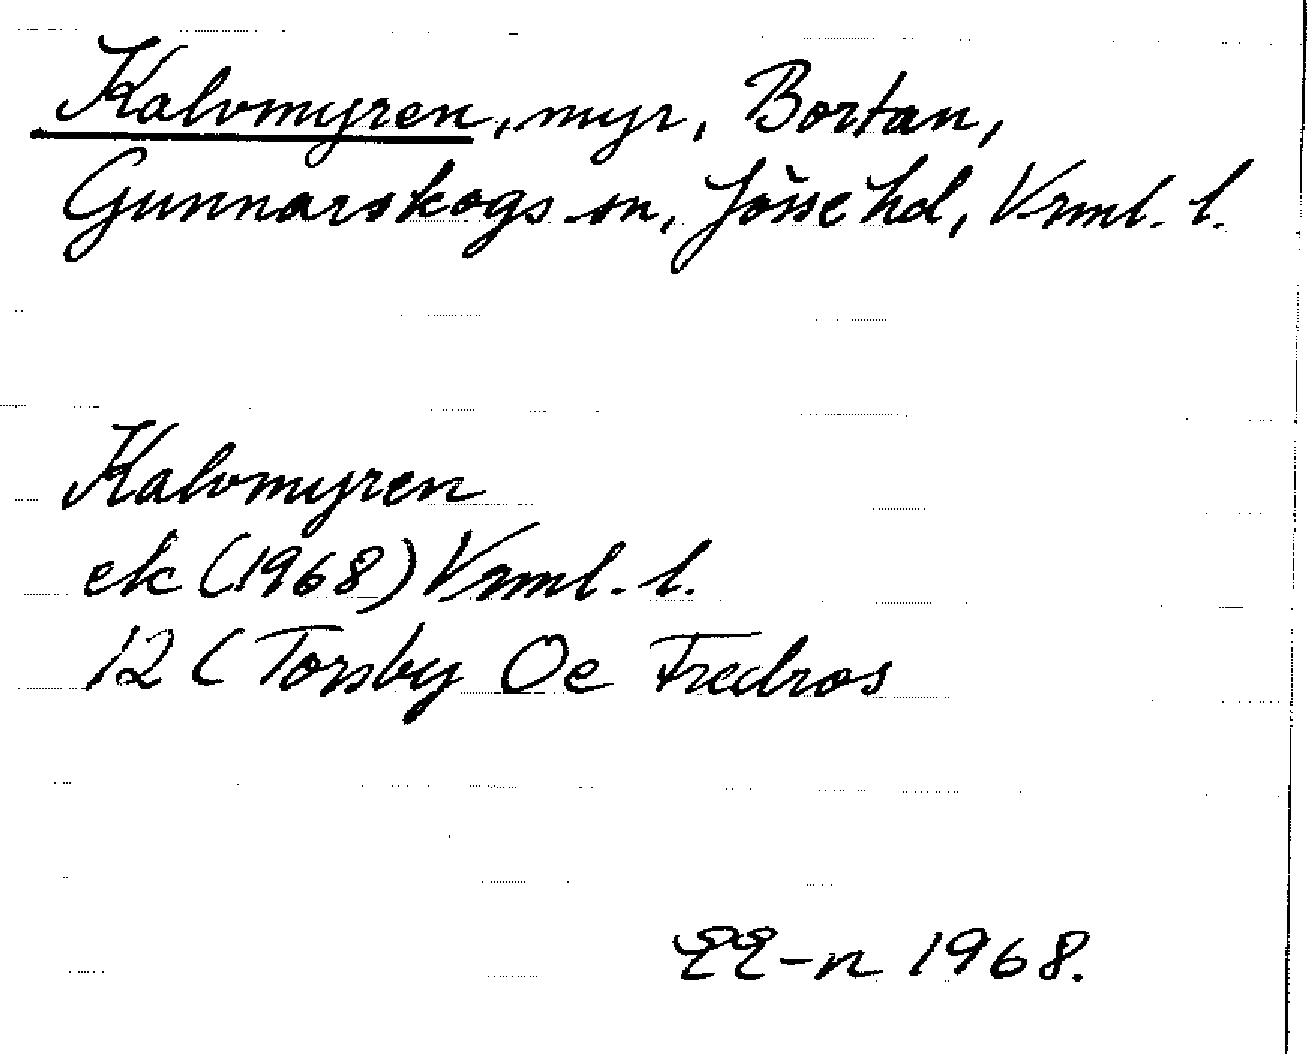 Kalvmyren, myr, Bortan,
Gunnarskogs sn, Jösse hd, Vrml. l.
Kalvmyren
ek (1968) Vrml. l.
12 C Torsby Oe Fredros
EE-n 1968.